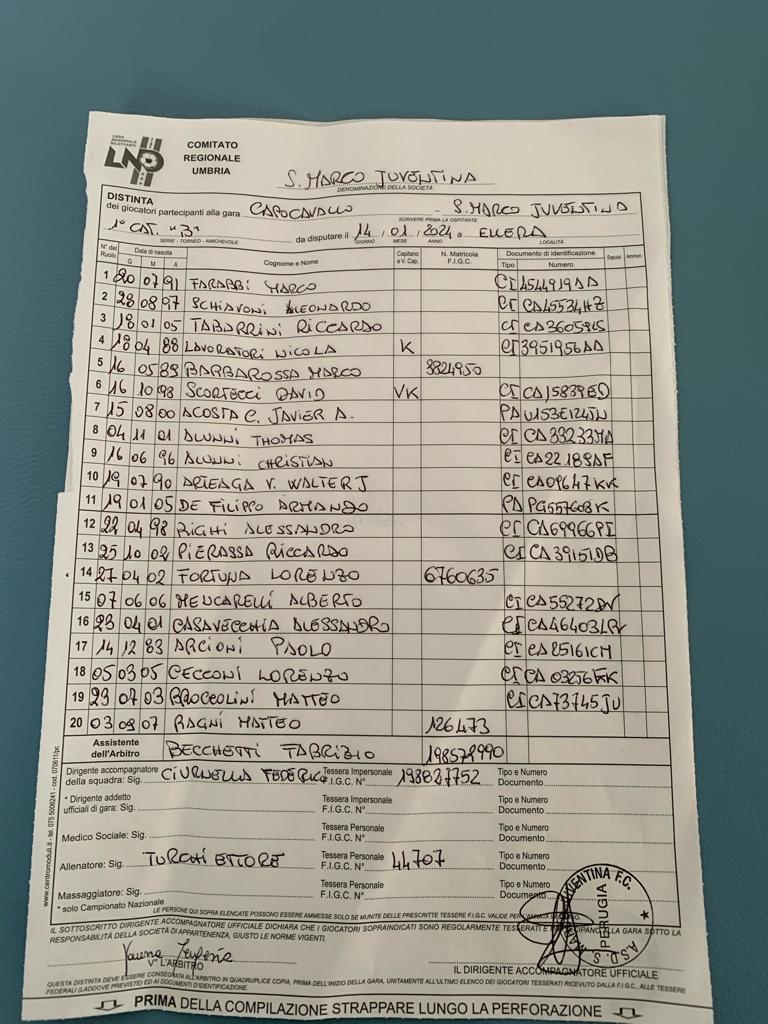 LEGA NAZIONALE DILETTANTI
LND
COMITATO
REGIONALE
UMBRIA
S. MARCO JUVENTINA
DENOMINAZIONE DELLA SOCIETÀ
DISTINTA
dei giocatori partecipanti alla gara CAPOCAVALLO - S. MARCO JUVENTINA
SCRIVERE PRIMA LA OSPITANTE
1° CAT. "B" da disputare il 14 / 01 / 2024 a ELLERA
SERIE - TORNEO - AMICHEVOLE GIORNO MESE ANNO LOCALITÀ
N° del Ruolo Data di nascita G M A Cognome e Nome Capitano e V. Cap. N. Matricola F.I.G.C. Documento di identificazione Tipo Numero Espulsi Ammon.
1 20 07 91 FARABBI MARCO CI 4544919AA
2 28 08 97 SCHIAVONI LEONARDO CI CA45534HZ
3 18 01 05 TABARRINI RICCARDO CI
4 18 04 88 LAVORATORI NICOLA K CI 3951956AA
5 16 05 89 BARBAROSSA MARCO 3824950
6 16 10 98 SCORTECCI DAVID VK CI CA15839ED
7 15 08 00 ACOSTA C. JAVIER A. PA U153E124JN
8 04 11 01 ALUNNI THOMAS CI CA33233MA
9 16 06 96 ALUNNI CHRISTIAN CI CA22189AF
10 19 07 90 ARTEAGA V. WALTER J CI CA09647KK
11 19 01 05 DE FILIPPO ARMANDO PA PG557608K
12 22 04 98 RIGHI ALESSANDRO CI CA69966PI
13 25 10 02 PIERASSA RICCARDO CI CA39151DB
14 27 04 02 FORTUNA LORENZO 6760635
15 07 06 06 MENCARELLI ALBERTO CI CA55272DV
16 23 04 01 CASAVECCHIA ALESSANDRO CI CA46403LR
17 14 12 83 ARCIONI PAOLO CI CA25161CM
18 05 03 05 CECCONI LORENZO CI CA03256KK
19 29 07 03 BROCCOLINI MATTEO CI CA73745JU
20 03 09 07 RAGNI MATTEO 126473
Assistente dell'Arbitro BECCHETTI FABRIZIO 198572990
Dirigente accompagnatore della squadra: Sig. CIURNELLA FEDERICO Tessera Impersonale F.I.G.C. N° 198827752 Tipo e Numero Documento
* Dirigente addetto ufficiali di gara: Sig. Tessera Impersonale F.I.G.C. N° Tipo e Numero Documento
Medico Sociale: Sig. Tessera Personale F.I.G.C. N° Tipo e Numero Documento
Allenatore: Sig. TURCHI ETTORE Tessera Personale F.I.G.C. N° 44707 Tipo e Numero Documento
Massaggiatore: Sig. Tessera Personale F.I.G.C. N° Tipo e Numero Documento
* solo Campionato Nazionale
LE PERSONE QUI SOPRA ELENCATE POSSONO ESSERE AMMESSE SOLO SE MUNITE DELLE PRESCRITTE TESSERE F.I.G.C. VALIDE PER
IL SOTTOSCRITTO DIRIGENTE ACCOMPAGNATORE UFFICIALE DICHIARA CHE I GIOCATORI SOPRAINDICATI SONO REGOLARMENTE TESSERATI E PARTECIPANO ALLA GARA SOTTO LA
RESPONSABILITÀ DELLA SOCIETÀ DI APPARTENENZA, GIUSTO LE NORME VIGENTI.
V° L'ARBITRO
IL DIRIGENTE ACCOMPAGNATORE UFFICIALE
A.S.D. S. MARCO JUVENTINA F.C.
PERUGIA
QUESTA DISTINTA DEVE ESSERE CONSEGNATA ALL'ARBITRO IN QUADRUPLICE COPIA, PRIMA DELL'INIZIO DELLA GARA, UNITAMENTE ALL'ULTIMO ELENCO DEI GIOCATORI TESSERATI RICEVUTO DALLA F.I.G.C., ALLE TESSERE
FEDERALI (LADDOVE PREVISTE) ED AI DOCUMENTI D'IDENTIFICAZIONE.
PRIMA DELLA COMPILAZIONE STRAPPARE LUNGO LA PERFORAZIONE
www.centromoduli.it - tel. 075 5006241 - cod. 070611/pc